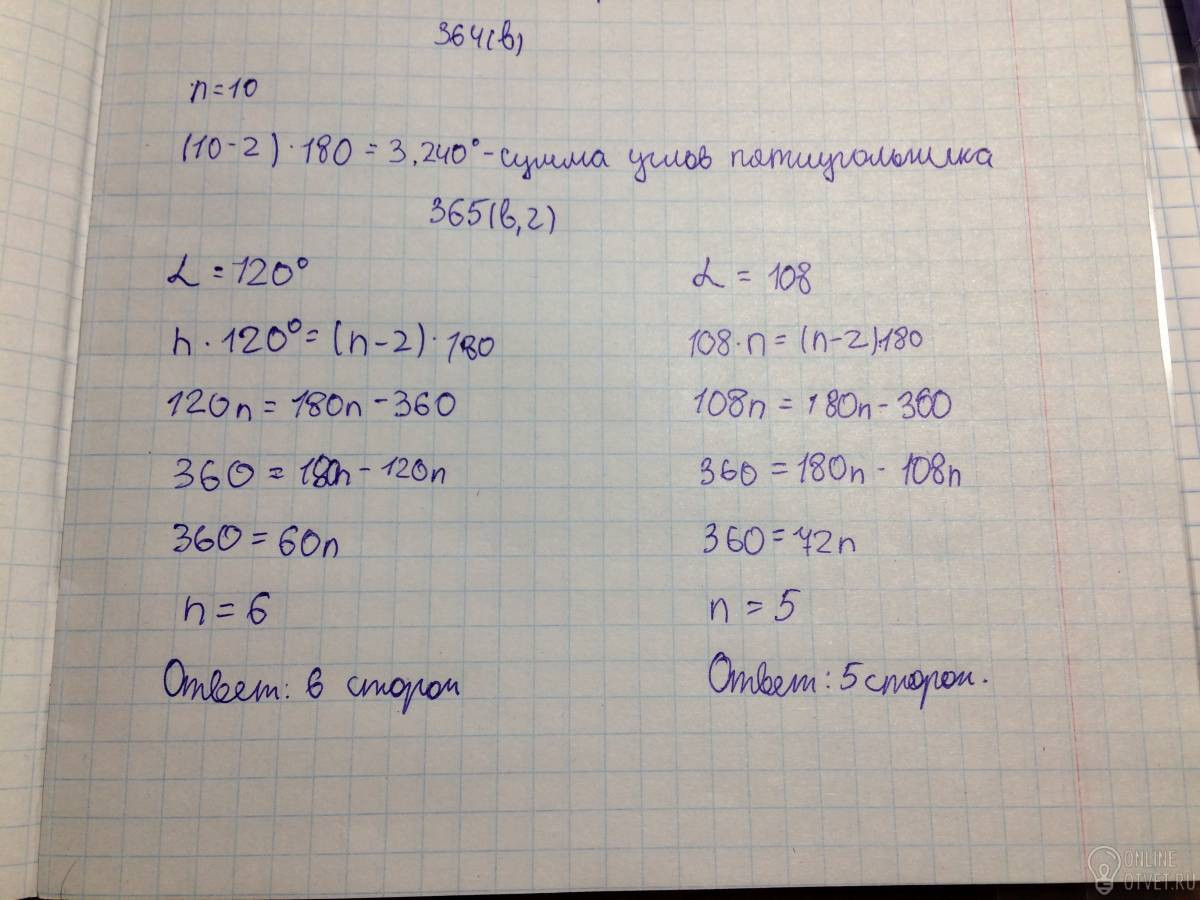 364(в)
n=10
(10-2)·180=3.240°-сумма углов пятиугольника
365(в,г)
∠=120°
n·120°=(n-2)·180
120n=180n-360
360=180n-120n
360=60n
n=6
Ответ: 6 сторон
∠=108
108·n=(n-2)·180
108n=180n-360
360=180n-108n
360=72n
n=5
Ответ: 5 сторон.
ONLINE
OTVET.RU